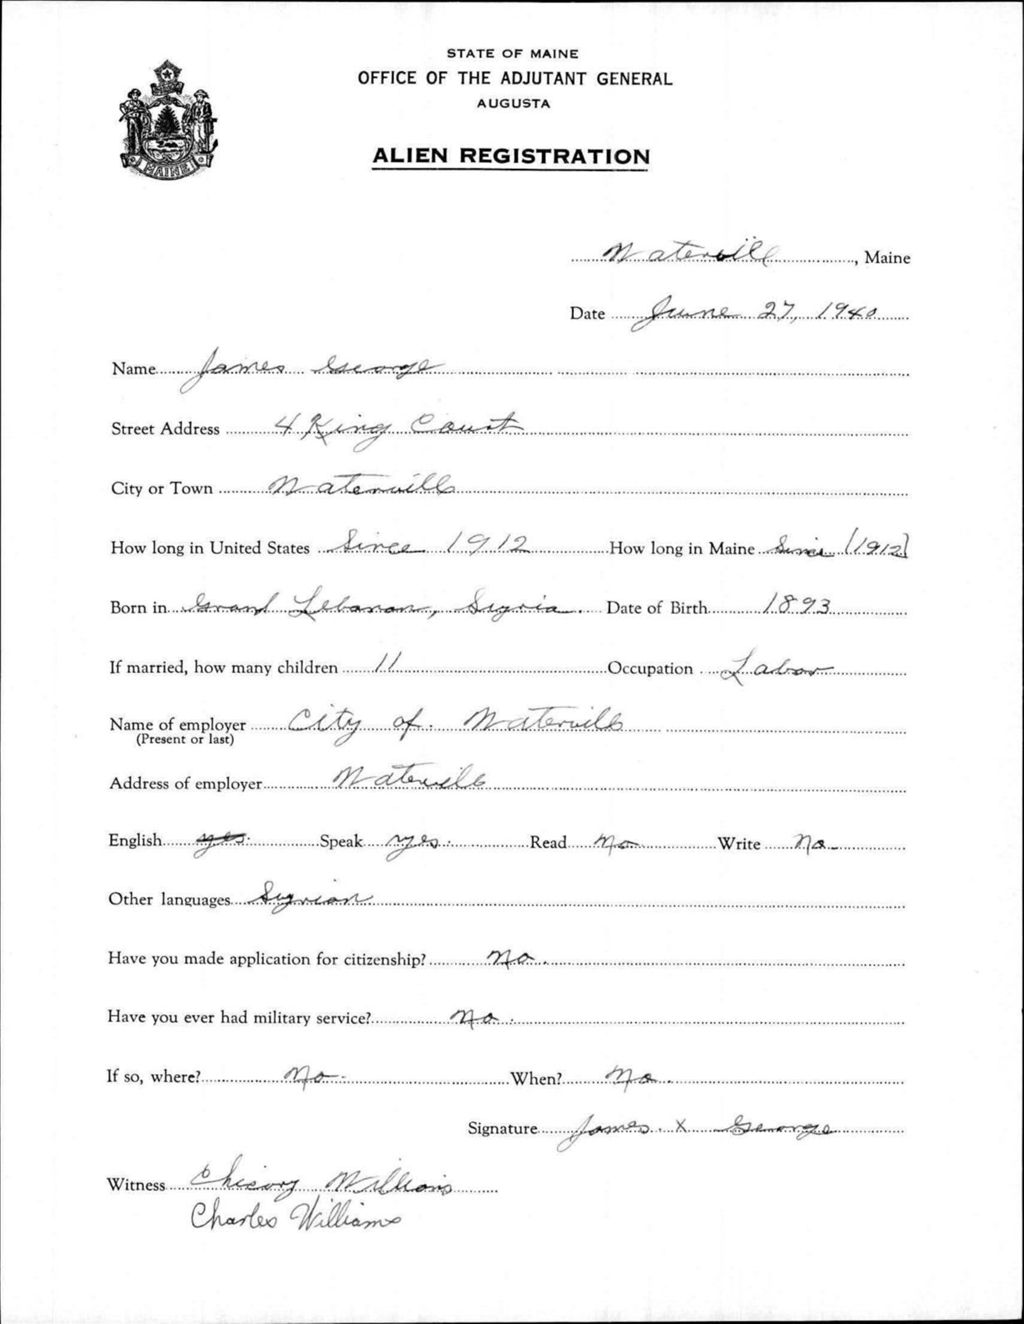 STATE OF MAINE
OFFICE OF THE ADJUTANT GENERAL
AUGUSTA
ALIEN REGISTRATION
MAINE
Waterville, Maine
Date June 27, 1940
Name James George
Street Address 4 King Court
City or Town Waterville
How long in United States Since 1912 How long in Maine Since (1912)
Born in Lebanon, Syria. Date of Birth 1893
If married, how many children 11 Occupation Labor
Name of employer City of Waterville
(Present or last)
Address of employer Waterville
English yes. Speak yes. Read No Write No
Other languages Syrian
Have you made application for citizenship? No.
Have you ever had military service? No.
If so, where? No. When? No.
Signature James X George
Witness Williams
Charles Williams